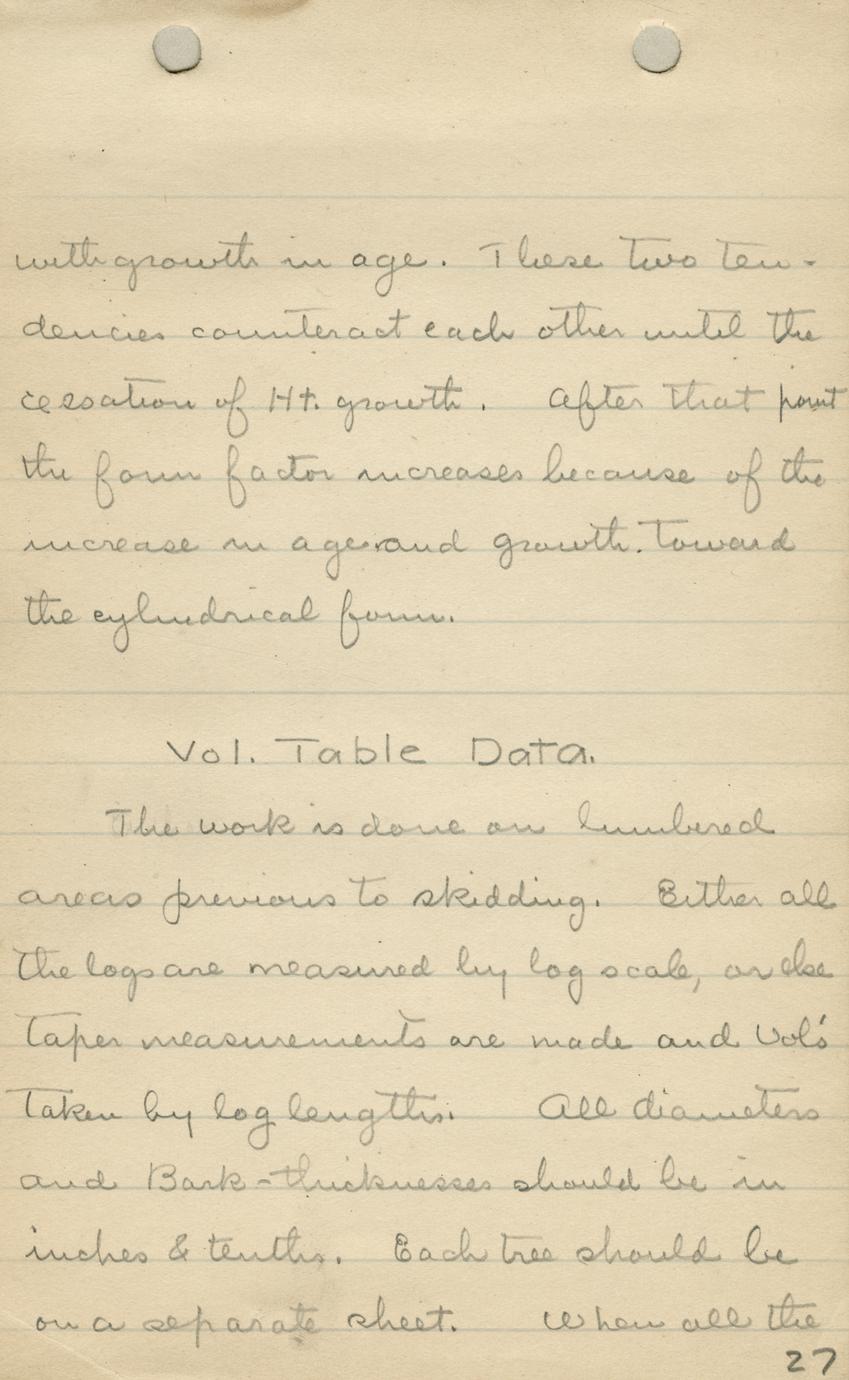 with growth in age. These two ten-
dencies counteract each other until the
cessation of Ht. growth. After that point
the form factor increases because of the
increase in age and growth. Toward
the cylindrical form.
Vol. Table Data.
The work is done on lumbered
areas previous to skidding. Either all
the logs are measured by log scale, or else
taper measurements are made and Vol's
taken by log lengths. All diameters
and Bark-thicknesses should be in
inches & tenths. Each tree should be
on a separate sheet. When all the
27